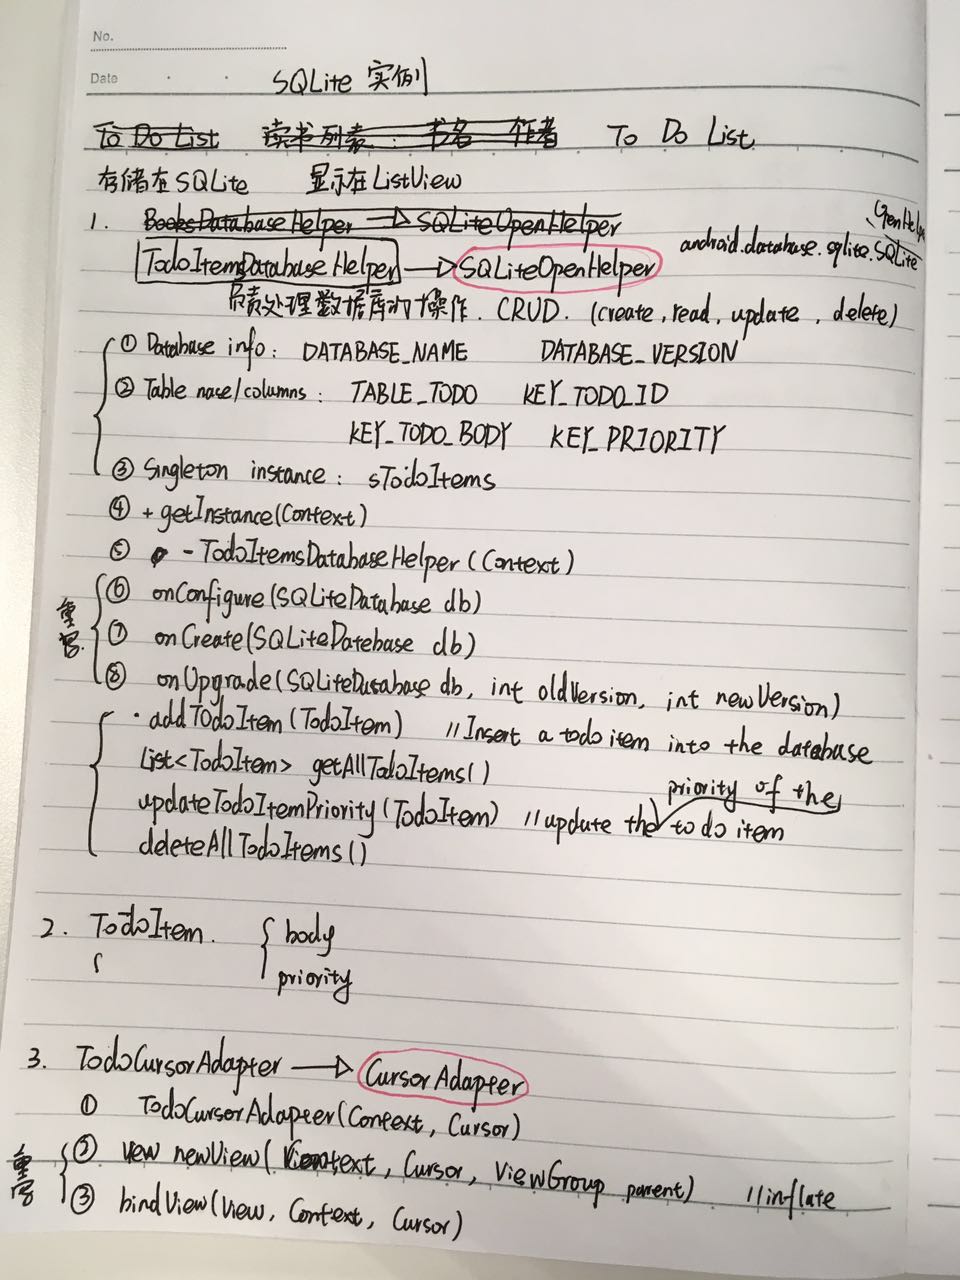 No.
Date
SQLite 实例
To Do List 读书列表: 书名 作者 To Do List
存储在SQLite 显示在ListView
1. BooksDatabaseHelper → SQLiteOpenHelper
TodoItemsDatabaseHelper → SQLiteOpenHelper android.database.sqlite.SQLite OpenHelper
负责处理数据库的操作. CRUD. (create, read, update, delete)
① Database info: DATABASE_NAME DATABASE_VERSION
② Table nase/columns: TABLE_TODO KEY_TODO_ID
KEY_TODO_BODY KEY_PRIORITY
③ Singleton instance: sTodoItems
④ + getInstance(Context)
⑤ - TodoItemsDatabaseHelper(Context)
重写
⑥ onConfigure(SQLiteDatabase db)
⑦ onCreate(SQLiteDatebase db)
⑧ onUpgrade(SQLiteDatabase db, int oldVersion, int newVersion)
· addTodoItem(TodoItem) //Insert a todo item into the database
List<TodoItem> getAllTodoItems()
updateTodoItemPriority(TodoItem) //update the priority of the to do item
deleteAllTodoItems()
2. TodoItem. { body
{ priority
3. TodoCursorAdapter → CursorAdapter
① TodoCursorAdapter(Context, Cursor)
重写
② View newView(Context, Cursor, ViewGroup parent) //inflate
③ bindView(View, Context, Cursor)